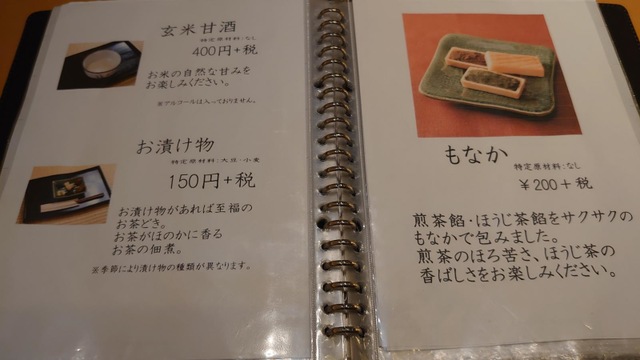 玄米甘酒
特定原材料:なし
400円+税
お米の自然な甘みを
お楽しみください。
※アルコールは入っておりません。
お漬け物
特定原材料:大豆・小麦
150円+税
お漬け物があれば至福の
お茶どき。
お茶がほのかに香る
お茶の佃煮。
※季節により漬け物の種類が異なります。
もなか
特定原材料:なし
¥200+税
煎茶餡・ほうじ茶餡をサクサクの
もなかで包みました。
煎茶のほろ苦さ、ほうじ茶の
香ばしさをお楽しみください。